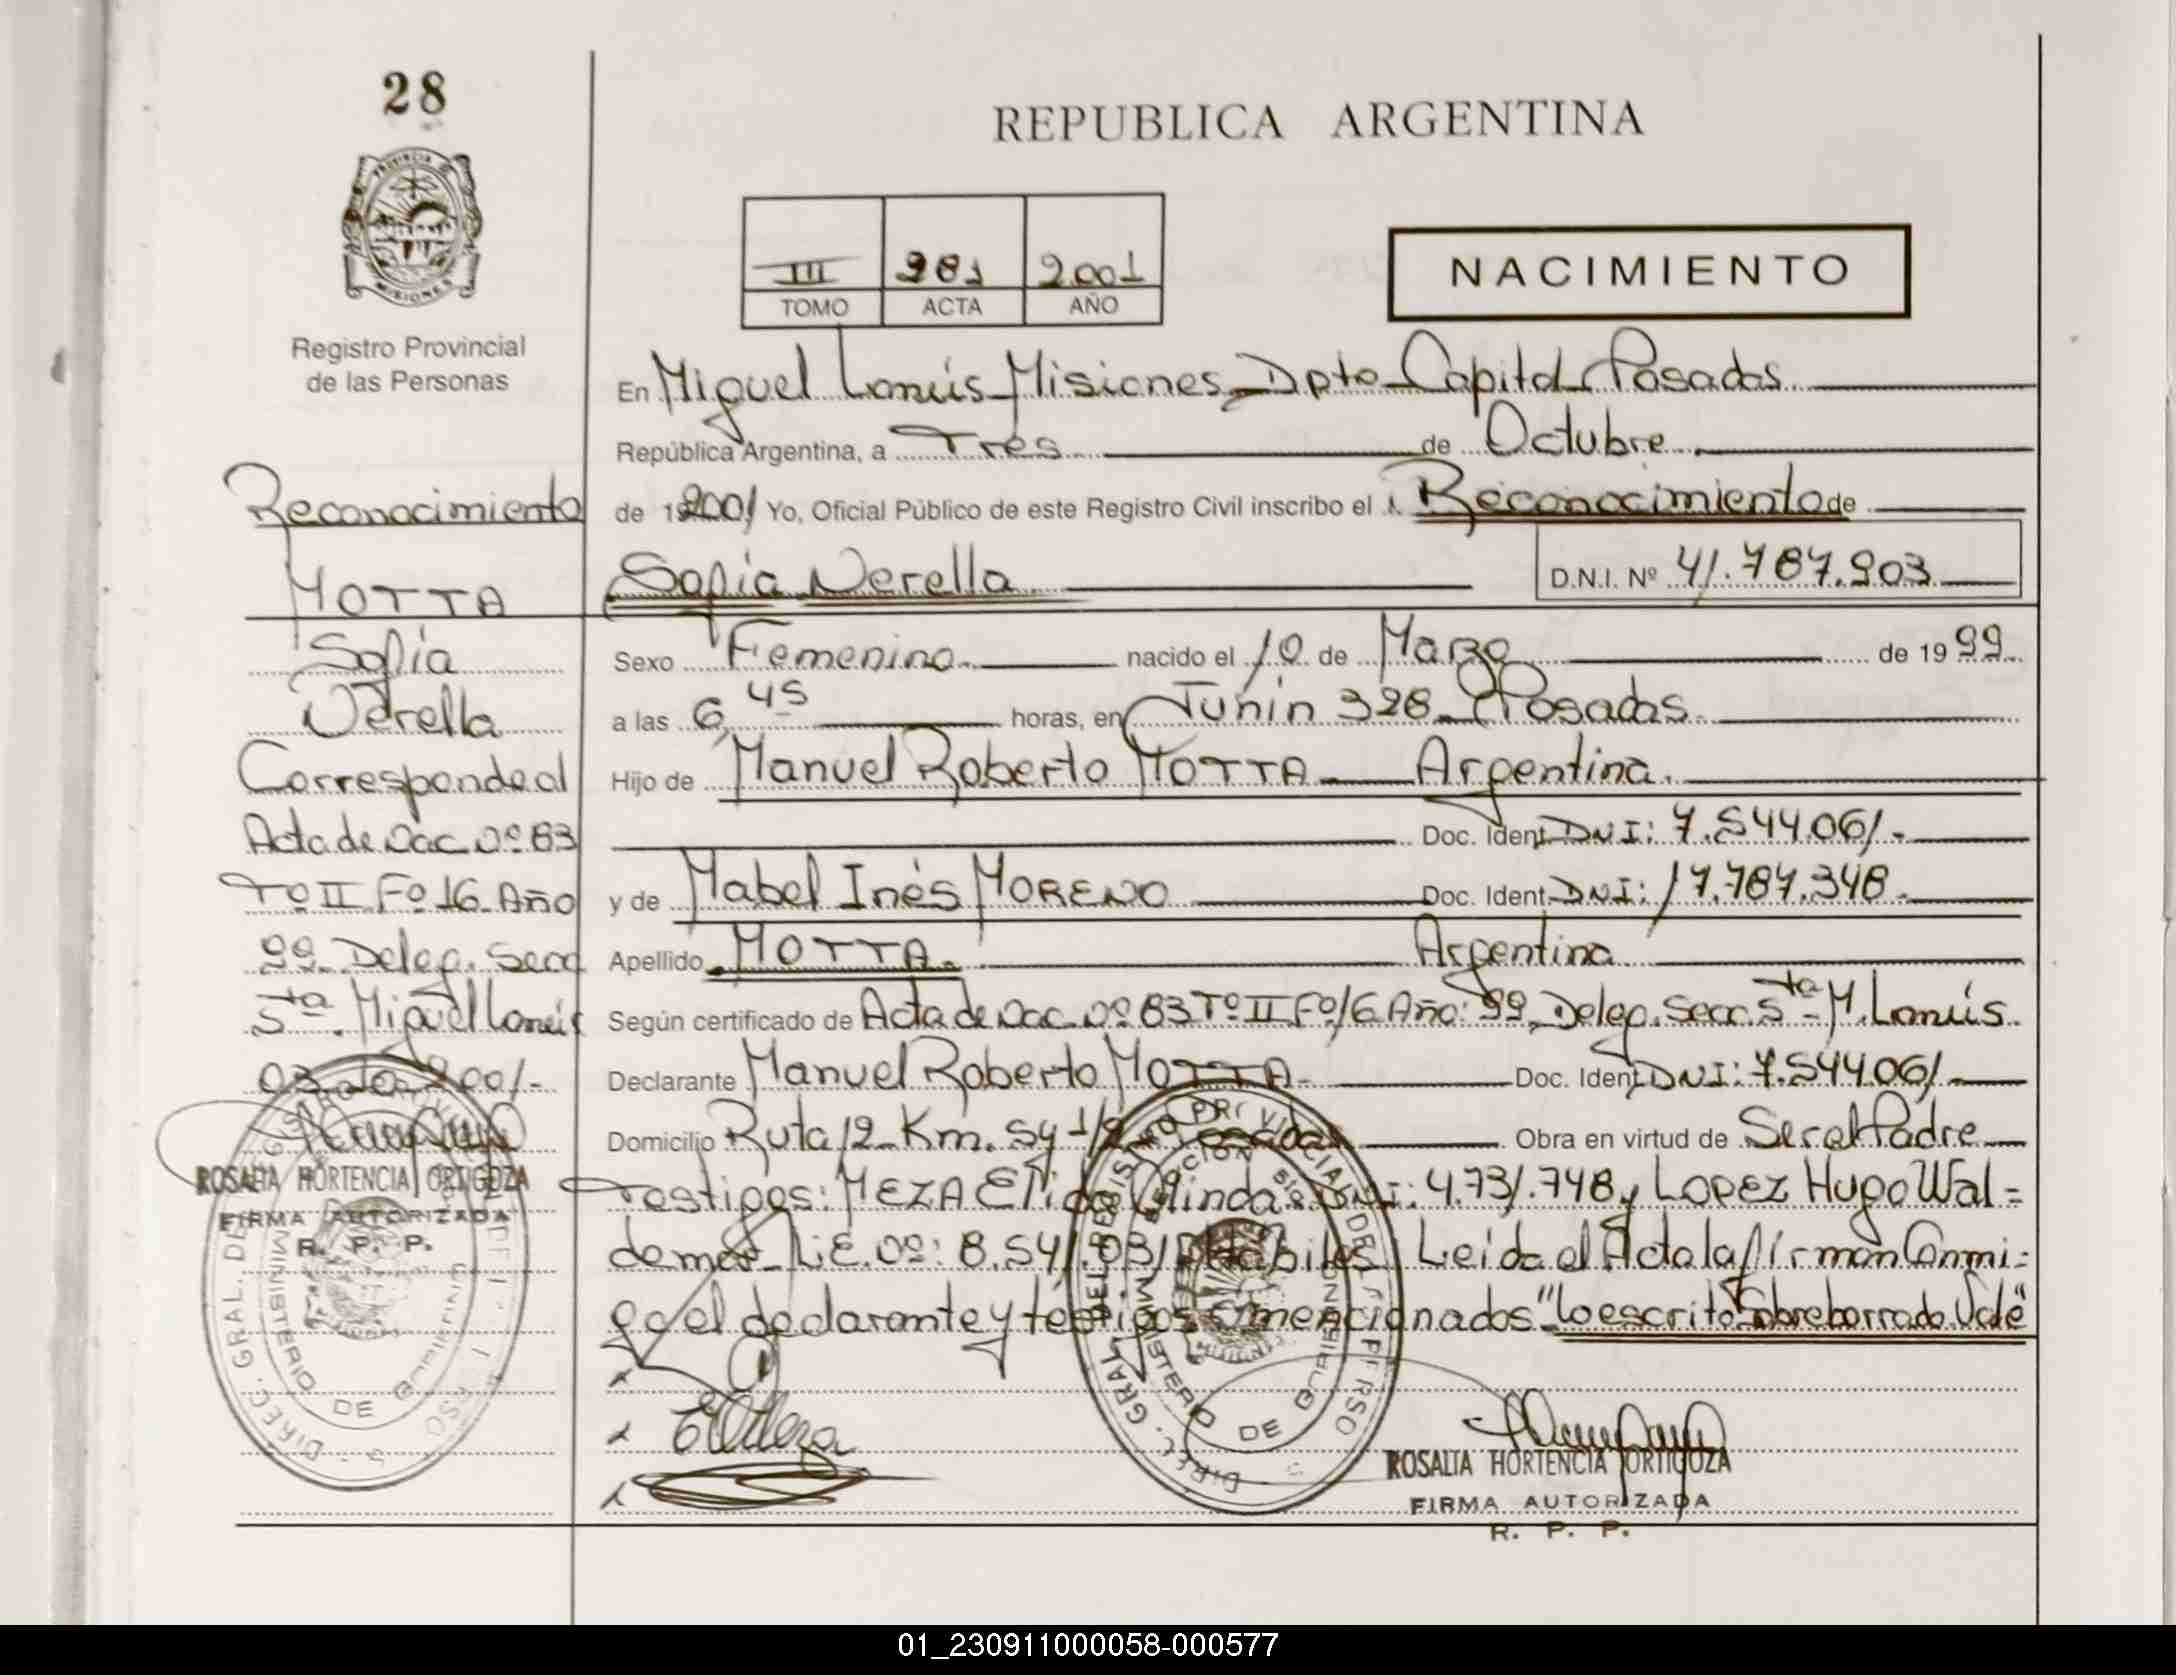 28
REPUBLICA ARGENTINA
PROVINCIA DE
MISIONES
Registro Provincial
de las Personas
III 281 2001
TOMO ACTA AÑO
NACIMIENTO
En Miguel Lanús Misiones Dpto Capital Posadas
República Argentina, a Tres de Octubre
de 192001 Yo, Oficial Público de este Registro Civil inscribo el Reconocimiento de
Sofia Nerella D.N.I. Nº 41.787.903
Sexo Femenino nacido el 10 de Marzo de 1999
a las 6,45 horas, en Junin 328 Posadas
Hijo de Manuel Roberto MOTTA Argentina.
Doc. Ident DNI: 7.544.061.-
y de Mabel Inés MORENO Doc. Ident DNI: 17.787.348.
Apellido MOTTA. Argentina
Según certificado de Acta de Nac Nº 83 Tº II Fº 16 Año: 99 Deleg. Secc. 5ta M. Lanús.
Declarante Manuel Roberto MOTTA Doc. Ident DNI: 7.544.061.
Domicilio Ruta 12 Km. 5y 1/2 Posadas Obra en virtud de Ser el Padre
Testigos: MEZA Elida DNI: 4.731.748 y LOPEZ Hugo Wal=
demar L.E. Nº: 8.541.031 Hábiles Leida el Acta la firman Conmi=
go el declarante y testigos mencionados "Lo escrito Sobreborrado Vale"
ROSALIA HORTENCIA ORTIGOZA
FIRMA AUTORIZADA
R. P. P.
Reconocimiento
MOTTA
Sofia
Nerella
Corresponde al
Acta de Nac Nº 83
Tº II Fº 16 Año
99 Deleg. Secc
5ta. Miguel Lanús
03-10-2001.-
ROSALIA HORTENCIA ORTIGOZA
FIRMA AUTORIZADA
R. P. P.
DIREC. GRAL. DEL REGISTRO PROVINCIAL DE LAS PERSONAS
MINISTERIO DE GOBIERNO
01_230911000058-000577